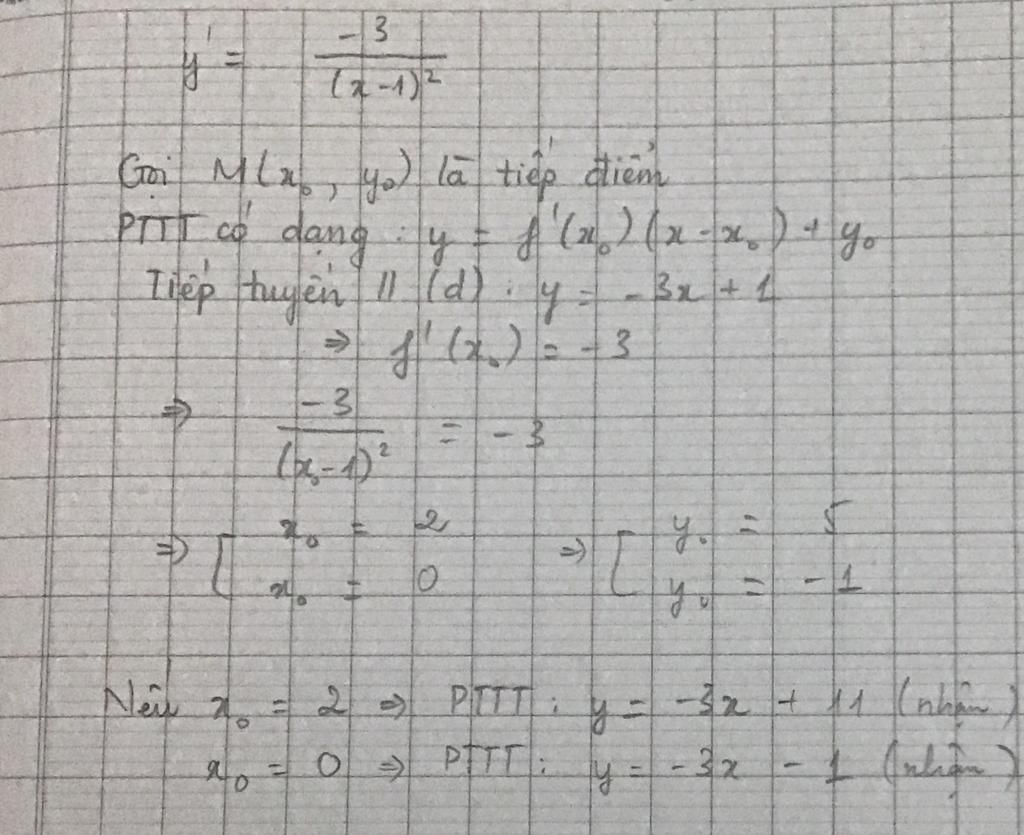 y' = -3/(x-1)²
Gọi M(x₀, y₀) là tiếp điểm
PTTT có dạng: y = f'(x₀)(x - x₀) + y₀
Tiếp tuyến // (d): y = -3x + 1
⇒ f'(x₀) = -3
⇒ -3/(x₀-1)² = -3
⇒ [ x₀ = 2 ⇒ [ y₀ = 5
x₀ = 0 y₀ = -1
Nếu x₀ = 2 ⇒ PTTT: y = -3x + 11 (nhận)
x₀ = 0 ⇒ PTTT: y = -3x - 1 (nhận)